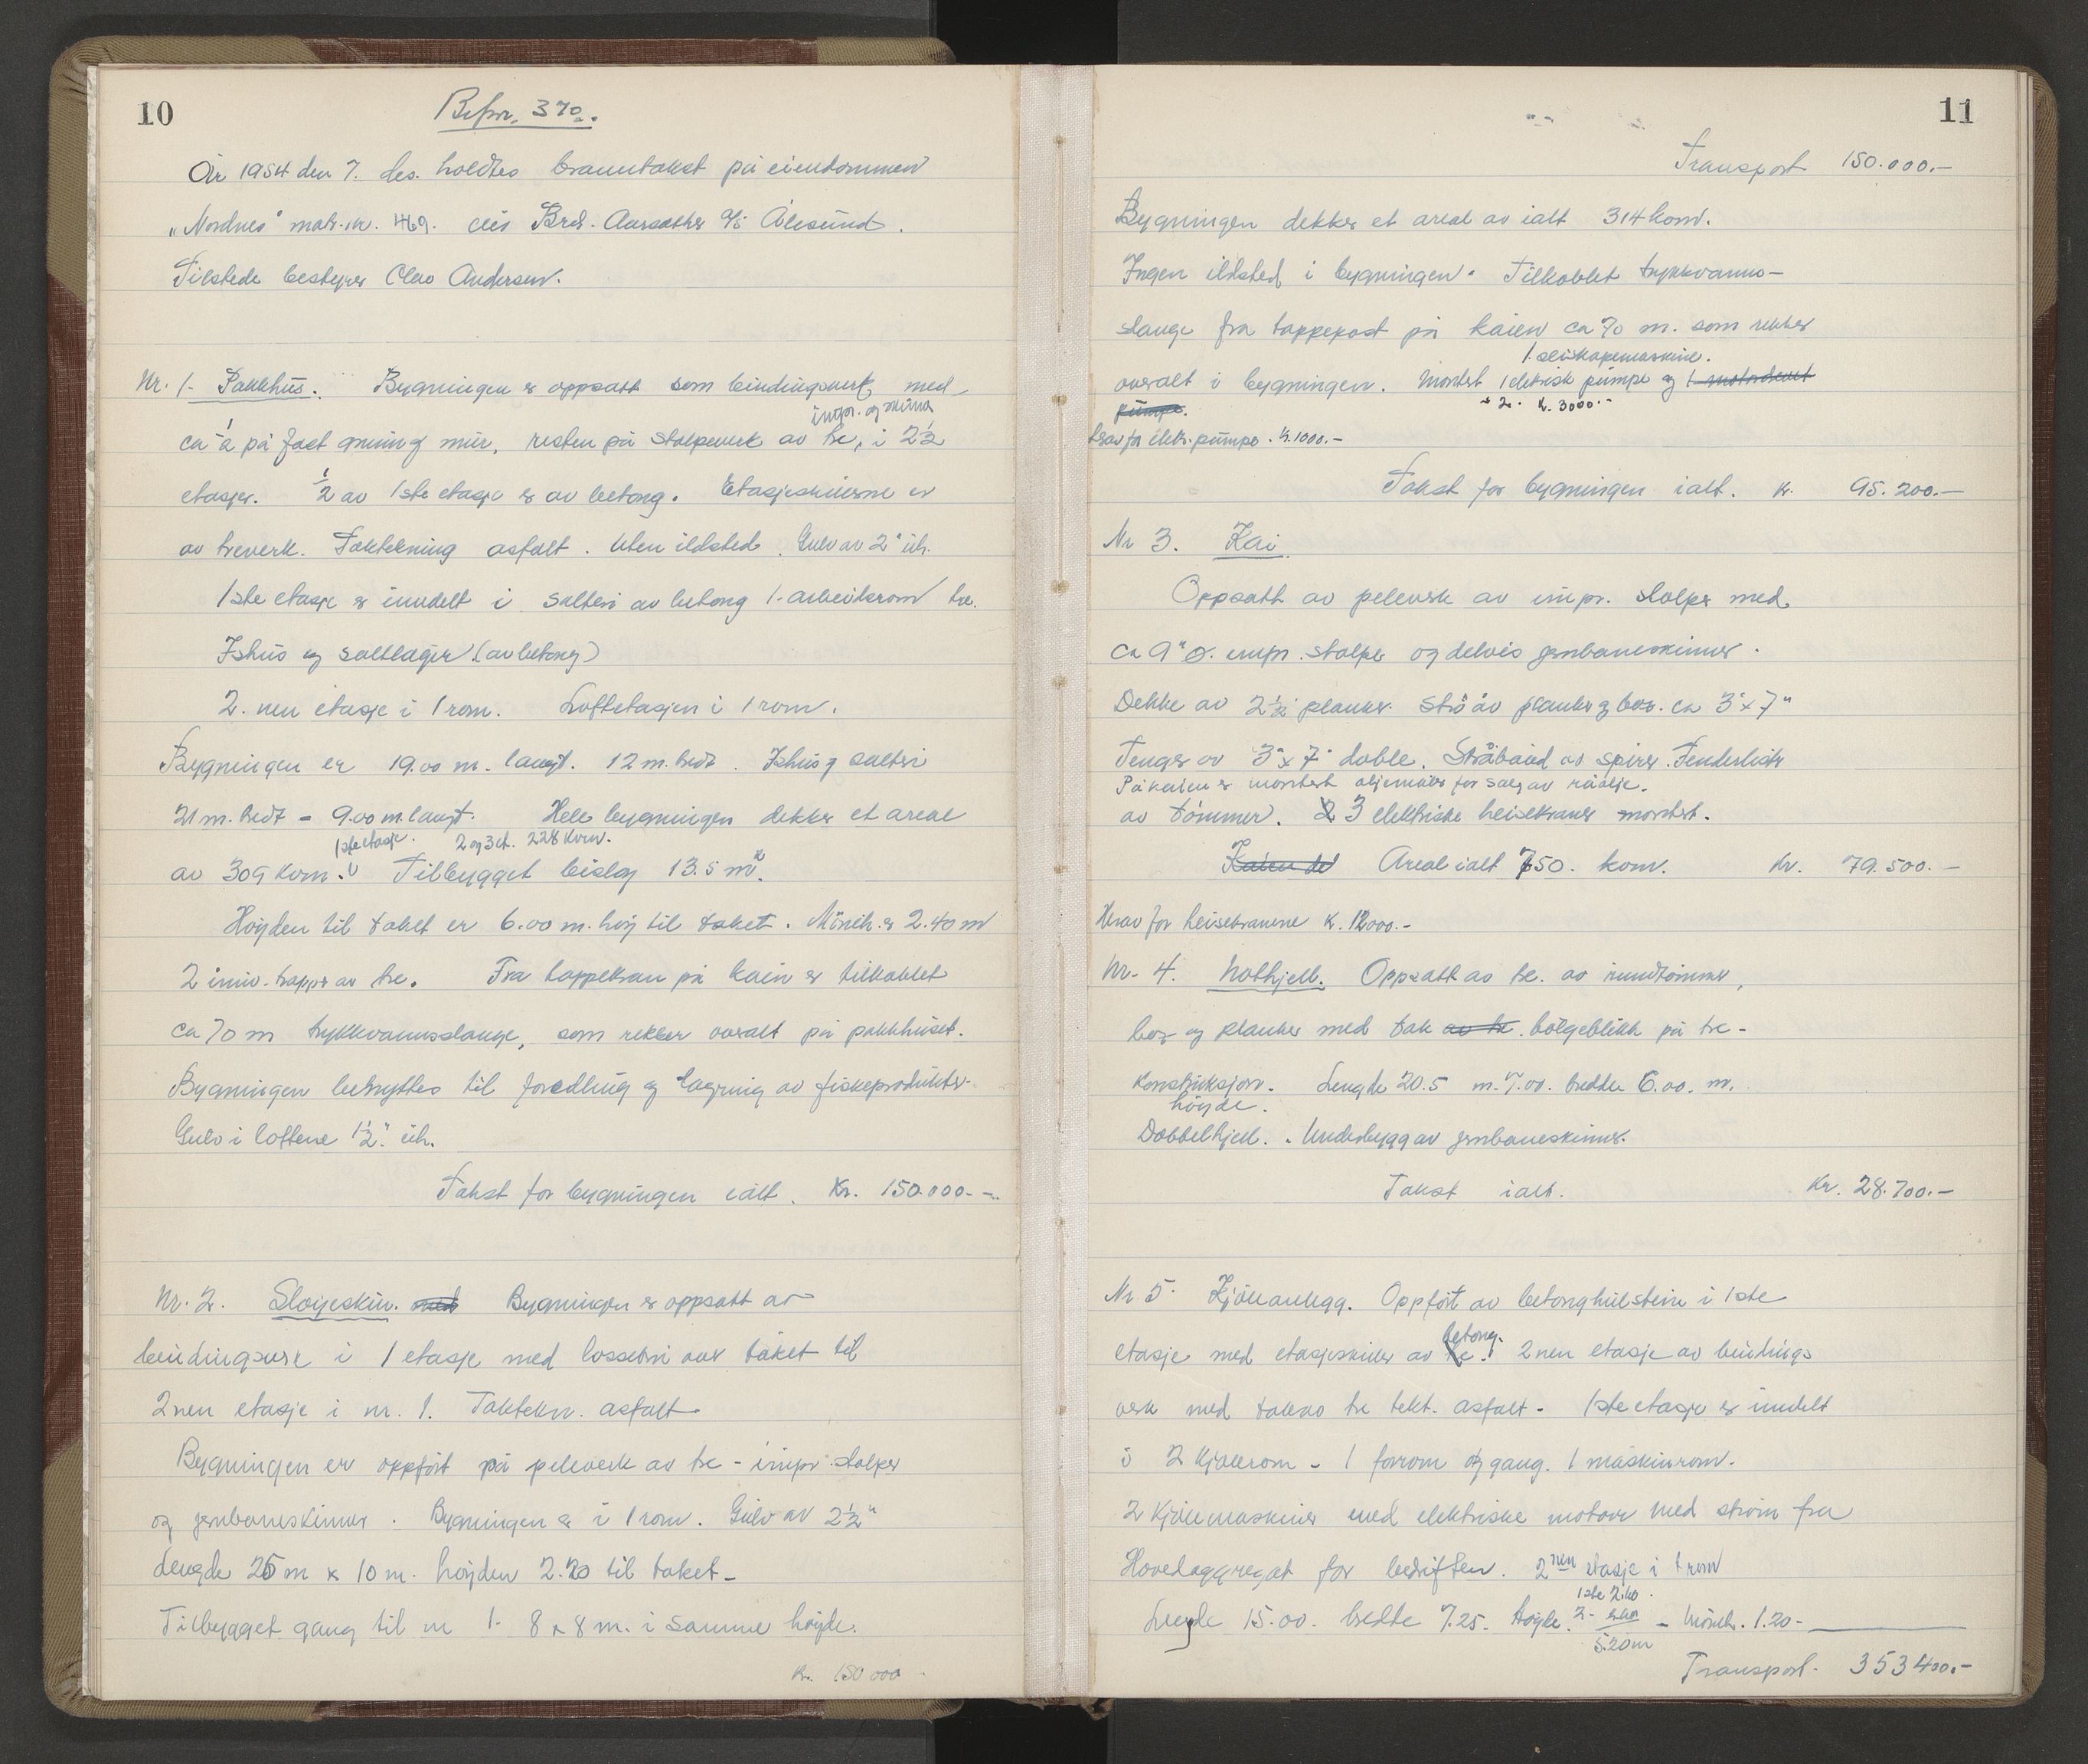 10
Befar. 370.
År 1954 den 7. des. holdtes branntakst på eiendommen
„Nordnes" matr.nr. 469. Brdr. Aarsæther A/S Ålesund.
Tilstede bestyrer Olav Andersen.
Nr. 1. Pakkhus. Bygningen er oppsatt som bindingsverk med
impr. og skinner
ca ½ på fast grunn og mur, resten på stolpeverk av tre, i 2½
etasjer. ½ av 1ste etasje er av betong. Etasjeskillerne er
av treverk. Taktekning asfalt. Uten ildsted. Gulv av 2" uh.
1ste etasje er inndelt i salteri av betong 1. arbeidsrom tre.
Ishus og saltlager (av betong)
2. nen etasje i 1 rom. Loftetasjen i 1 rom.
Bygningen er 19.00 m. langt. 12 m. bredt. Ishus og salteri
21 m. bredt - 9.00 m. langt. Hele bygningen dekker et areal
1ste etasje. 2 og 3 et. 228 kvm.
av 309 kvm. Tilbygget bislag 13.5 m².
Høyden til taket er 6.00 m. høy til taket. Möneh. er 2.40 m
2 innv. trapper av tre. Fra tappekran på kaien er tilkoblet
ca 70 m trykkvannsslange, som rekker overalt på pakkhuset.
Bygningen benyttes til foredling og lagring av fiskeprodukter.
Gulv i loftene 1½" uh.
Takst for bygningen ialt. Kr. 150.000.-
Nr. 2. Sløyeskur. med Bygningen er oppsatt av
bindingsverk i 1 etasje med lossebru over taket til
2nen etasje i nr. 1. Taktekn. asfalt
Bygningen er oppført på peleverk av tre - impr. stolper
og jernbaneskinner. Bygningen er i 1 rom. Gulv av 2½"
Lengde 25 m x 10 m. høyden 2.20 til taket -
Tilbygget gang til nr 1. 8 x 8 m. i samme høyde.
Kr. 150 000
11
Transport 150.000.-
Bygningen dekker et areal av ialt 314 kvm.
Ingen ildsted i bygningen. Tilkoblet trykkvanns-
slange fra tappepost på kaien ca 70 m. som rekker
1. seiskapemaskine.
overalt i bygningen. Montert 1 elektrisk pumpe og 1 motordrevet
pumpe. K. 3000.-
herav for elektr. pumpe. K. 1000.-
Takst for bygningen ialt. K. 95.200.-
Nr 3. Kai.
Oppsatt av peleverk av impr. stolper med
ca 9" ø. impr. stolper og delvis jernbaneskinner.
Dekke av 2½" planker. Strø av planker og bor. ca 3" x 7"
Tenger av 3" x 7" doble. Stråbånd av spirer. Fenderlister
På kaien er montert oljemåler for salg av råolje.
av tømmer. 2 3 elektriske heisekraner montert.
Kaien de Areal ialt 750. kvm. Kr. 79.500.-
Herav for heisekranene K. 12000.-
Nr. 4. Nothjell. Oppsatt av tre. av rundtømmer,
bor og planker med tak av tre. bølgeblikk på tre-
konstruksjon. Lengde 20.5 m. 7.00. bredde 6.00. m.
høyde.
Dobbelhjell. Underbygg av jernbaneskinner.
Takst ialt. Kr. 28.700.-
Nr 5. Kjøleanlegg. Oppført av betonghulstein i 1ste
betong.
etasje med etasjeskiller av tre. 2nen etasje av bindings
verk med takav tre tekt. asfalt. 1ste etasje er inndelt
i 2 kjølerom - 1 forrom og gang. 1 maskinrom.
2 kjølemaskiner med elektriske motorer med strøm fra
Hovedaggregat for bedriften. 2nen etasje i 1 rom
1ste 2.60.
Lengde 15.00. bredde 7.25. Høyde. 2- - Möneh. 1.20-
5.20 m
Transport. 353400.-